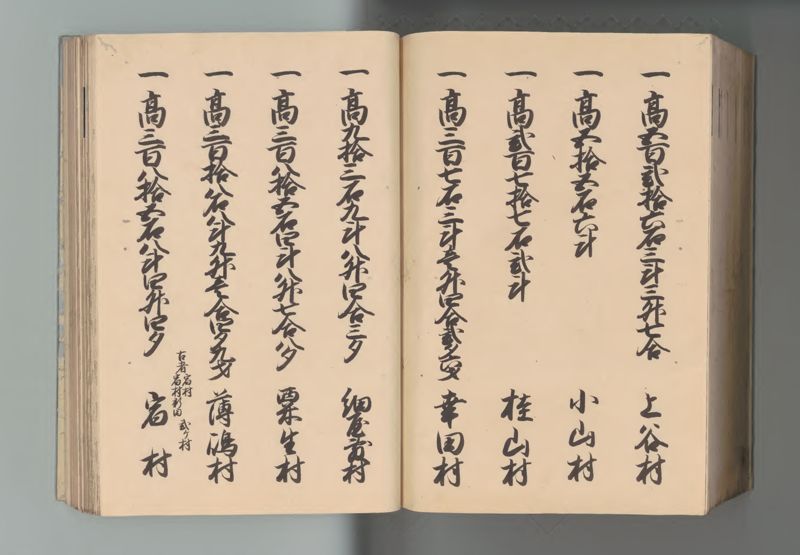 一高五百弐拾六石三斗三升七合 上谷村
一高五拾五石六斗 小山村
一高弐百七拾七石弐斗 桂山村
一高三百七石三斗壱升四合弐夕 幸田村
一高九拾三石九斗八升四合三夕 細屋敷村
一高三百八拾五石四斗八升七合八夕 粟生村
一高三百拾八石八斗九升壱合四夕九才 薄嶋村
古者 宿村
宿村新田 弐ヶ村
一高三百八拾五石八斗四升四夕 宿村